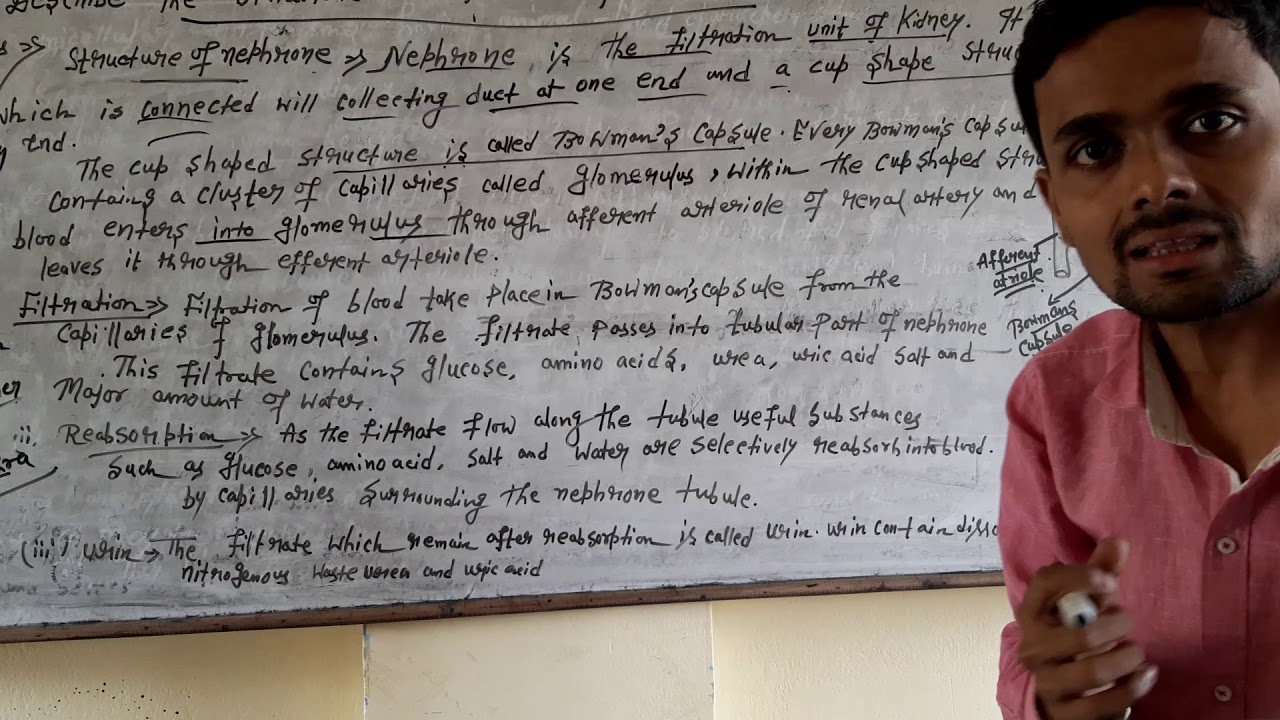 Describe the
Structure of nephrone => Nephrone is the filtration unit of Kidney. It
which is connected will collecting duct at one end and a cup shape struc
End.
The cup shaped structure is called Bowman's Capsule. Every Bowman's Capsu
Containg a cluster of Capillaries called glomerulus, within the cup shaped stru
blood enters into glomerulus through afferent arteriole of renal artery and
leaves it through efferent arteriole.
Afferent
atriole
Bowmans
Capsule
Filtration => Filtration of blood take place in Bowman's capsule from the
Capillaries of glomerulus. The filtrate passes into tubular part of nephrone
. This filtrate contains glucose, amino acids, urea, uric acid salt and
Major amount of water.
ii. Reabsorption => As the filtrate flow along the tubule useful substances
Such as glucose, amino acid, salt and water are selectively reabsorb into blood.
by capillaries surrounding the nephrone tubule.
(iii) urin → The filtrate which remain after reabsorption is called urin. urin contain disso
nitrogenous waste urea and uric acid